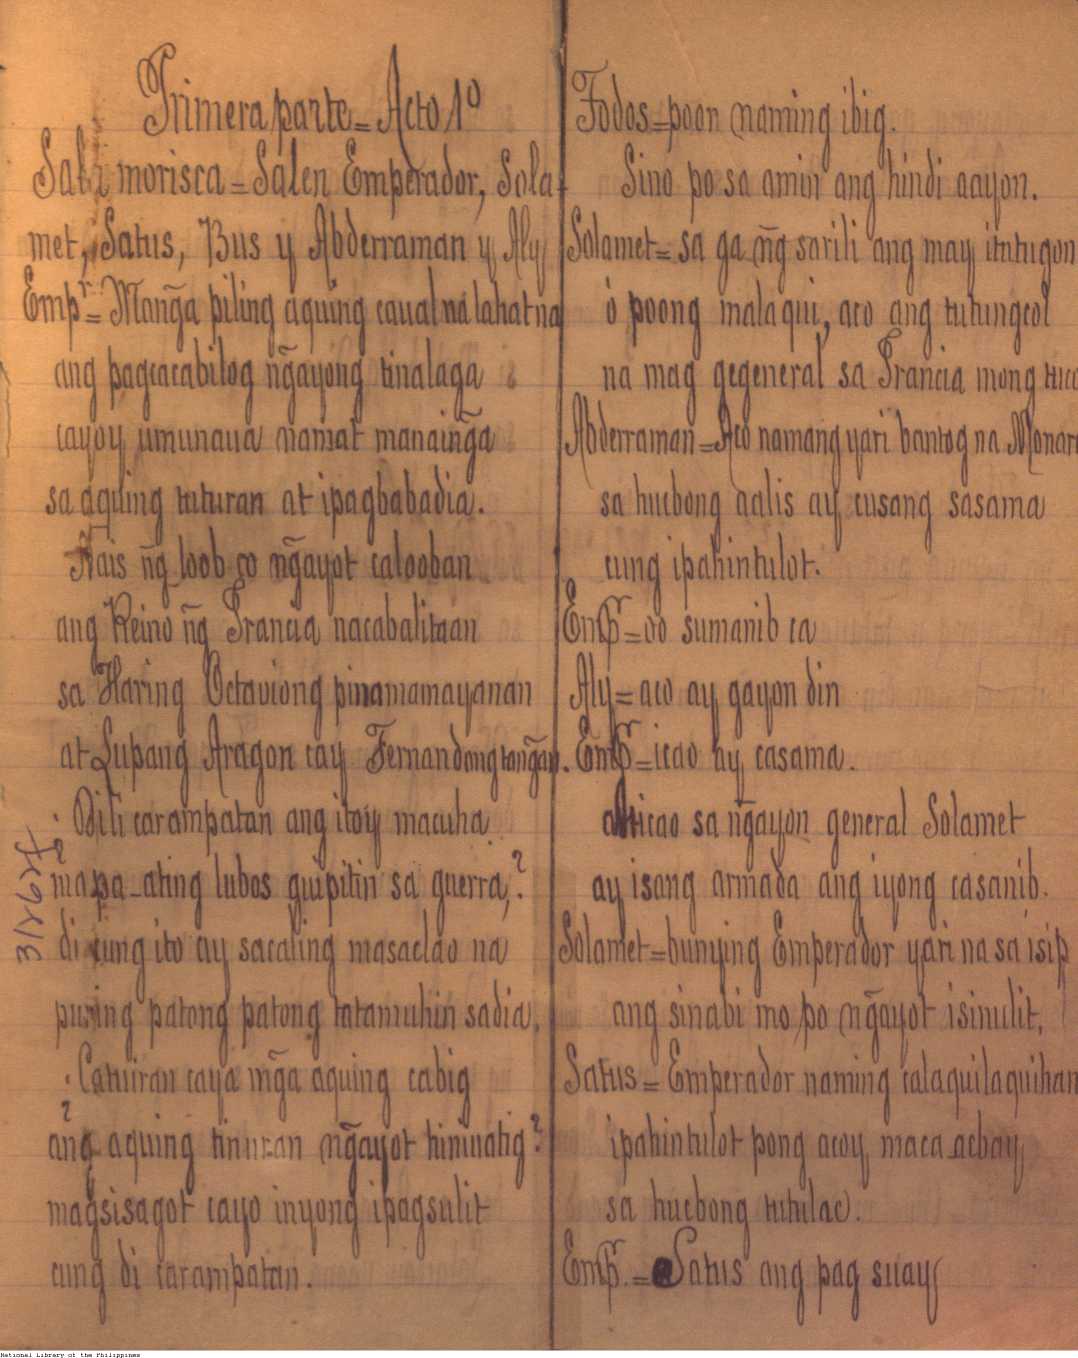 Primera parte = Acto 1º
Sale morisca = Salen Emperador, Sola-
met, Satus, Bus y Abderraman y Aly
Empr = Manga piling aquing caual na lahat na
ang pagcacabilog ñgayong tinalaga
cayoy umunaua namat manaiñga
sa aquing tuturan at ipagbabadia.
Nais ñg loob co ñgayot calooban
ang Reino ñg Francia nacabalitaan
sa Haring Octaviong pinamamayanan
at Lupang Aragon cay Fernandong tangan.
¿Dili carampatan ang itoy macuha
mapa-ating lubos guipitin sa guerra,?
di cung ito ay sacaling masaclao na
puring patong patong tatamuhin sadia.
¿Catuiran caya mg̃a aquing cabig
ang aquing tinuran ñgayot tiniuatig?
magsisagot cayo inyong ipagsulit
cung di carampatan.
Todos = poon naming ibig.
Sino po sa amin ang hindi aayon.
Solamet = sa ga ñg sarili ang may itutugon
ó poong malaqui, aco ang tutungcol
na mag gegeneral sa Francia mong
Abderraman = Aco namang yari bantog na
sa hucbong aalis ay cusang sasama
cung ipahintulot.
Emp. = oo sumanib ca
Aly = aco ay gayon din
Emp. = icao ay casama.
icao sa ñgayon general Solamet
ay isang armada ang iyong casanib.
Solamet = bunying Emperador yari na sa isip
ang sinabi mo po ñgayot isinulit,
Satus = Emperador naming calaquilaquihan
ipahintulot pong acoy maca acbay
sa hucbong tutulac.
Emp. = Satus ang pag suay
3/2627
National Library of the Philippines